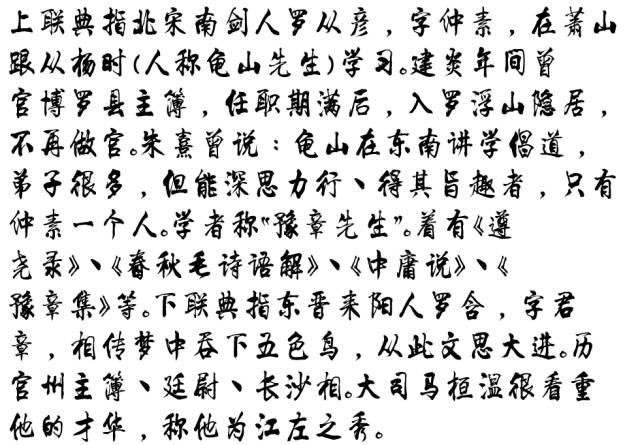 上联典指北宋南剑人罗从彦，字仲素，在萧山
跟从杨时(人称龟山先生)学习。建炎年间曾
官博罗县主簿，任职期满后，入罗浮山隐居，
不再做官。朱熹曾说：龟山在东南讲学倡道，
弟子很多，但能深思力行、得其旨趣者，只有
仲素一个人。学者称“豫章先生”。着有《遵
尧录》、《春秋毛诗语解》、《中庸说》、《
豫章集》等。下联典指东晋耒阳人罗含，字君
章，相传梦中吞下五色鸟，从此文思大进。历
官州主簿、廷尉、长沙相。大司马桓温很看重
他的才华，称他为江左之秀。